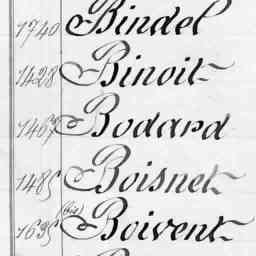 1740 Bindel
1428 Binoit
1467 Bodard
1485 Boisnet
1635 (bis) Boivent